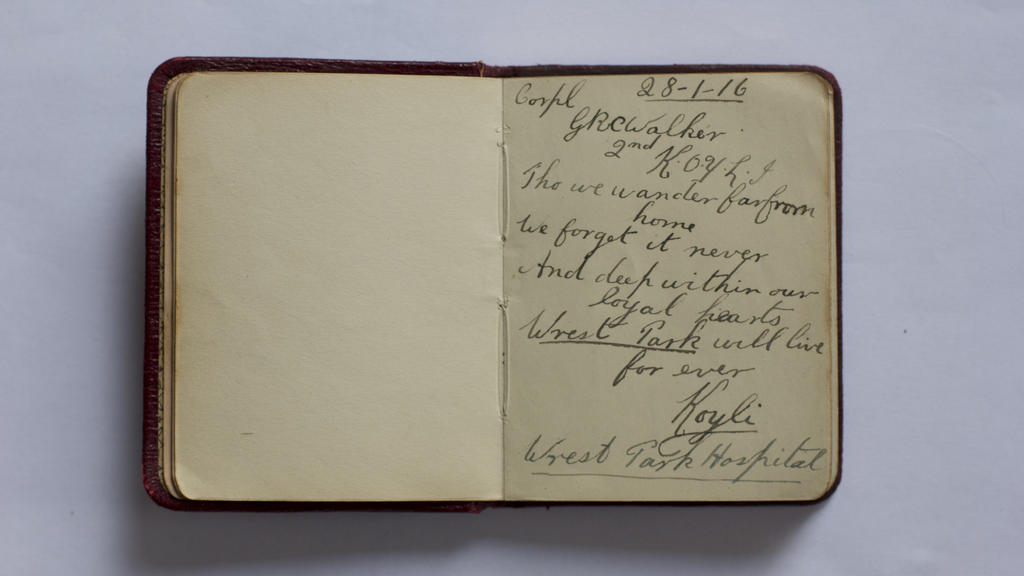 Corpl 28-1-16
GRCWalker
2nd K.O.Y.L.I
Tho we wander far from
home
We forget it never
And deep within our
loyal hearts
Wrest Park will live
for ever
Koyli
Wrest Park Hospital